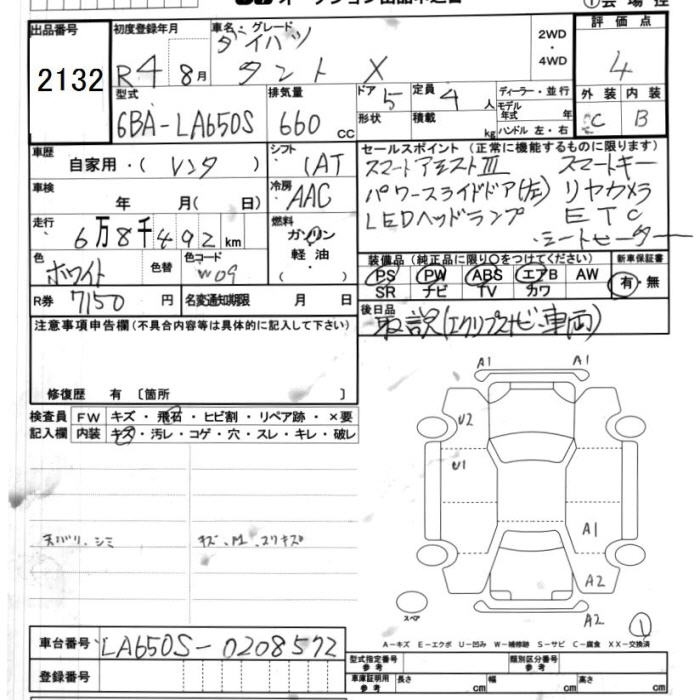 オークション出品申込書
①会場控
出品番号 2132
初度登録年月 R4 8月
車名・グレード ダイハツ タント X
2WD・4WD
評価点 4
型式 6BA-LA650S
排気量 660 CC
ドア 5
形状
定員 4 人
積載 kg
ディーラー・並行
モデル年式 年
ハンドル 左・右
外装 C 内装 B
車歴 自家用・( レンタ )
シフト IAT
冷房 AAC
車検 年 月( 日)
走行 6万8千492 km
燃料 ガソリン 軽油・( )
色 ホワイト 色替
色コード W09
R券 7150 円
名変通知期限 月 日
セールスポイント (正常に機能するものに限ります)
スマートアシストIII スマートキー
パワースライドドア(左) リヤカメラ
LEDヘッドランプ ETC
シートヒーター
装備品 (純正品に限り○をつけてください)
PS PW ABS エアB AW
SR ナビ TV カワ
新車保証書 有・無
後日品 取説(エクリプスナビ・車両)
注意事項申告欄 (不具合内容等は具体的に記入して下さい)
修復歴 有 〔箇所 〕
検査員記入欄
FW キズ・飛石・ヒビ割・リペア跡・×要
内装 キズ・汚レ・コゲ・穴・スレ・キレ・破レ
天バリ、シミ
A1 A1
U2
U1
A1
A2
A2
スペア
①
A−キズ E−エクボ U−凹み W−補修跡 S−サビ C−腐食 XX−交換済
車台番号 LA650S-0208572
登録番号
型式指定番号 参考
類別区分番号 参考
車庫証明用 参考 長さ cm 幅 cm 高さ cm